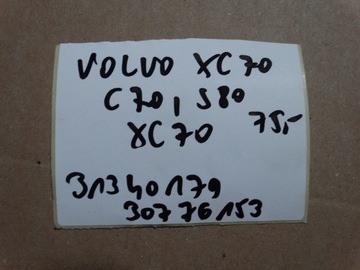 VOLVO XC70
C70, S80
XC70 75,-
31340179
30776153